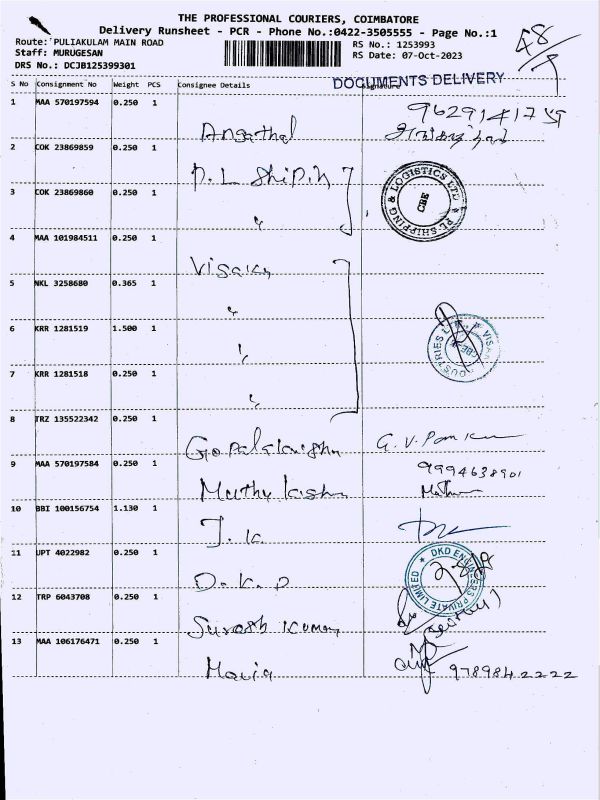 THE PROFESSIONAL COURIERS, COIMBATORE
Delivery Runsheet - PCR - Phone No.:0422-3505555 - Page No.:1
Route: PULIAKULAM MAIN ROAD
RS No.: 1253993
48
Staff: MURUGESAN
RS Date: 07-Oct-2023
DRS No.: DCJB125399301
DOCUMENTS DELIVERY
S No Consignment No Weight PCS Consignee Details Signature
1 MAA 570197594 0.250 1
Angathal
2 COK 23869859 0.250 1
P.L Shipin
3 COK 23869860 0.250 1
"
PL SHIPPING & LOGISTICS LTD
CBE
4 MAA 101984511 0.250 1
Visaka
5 NKL 3258680 0.365 1
"
6 KRR 1281519 1.500 1
"
CBE
7 KRR 1281518 0.250 1
"
8 TRZ 135522342 0.250 1
Gopalakrishn
9 MAA 570197584 0.250 1
9994638901
Muthu krishn
10 BBI 100156754 1.130 1
J. k
11 UPT 4022982 0.250 1
D. K. D
DKD ENGINEERS PRIVATE LIMITED
12 TRP 6043708 0.250 1
Suresh Kumar
13 MAA 106176471 0.250 1
Maria
9789842222